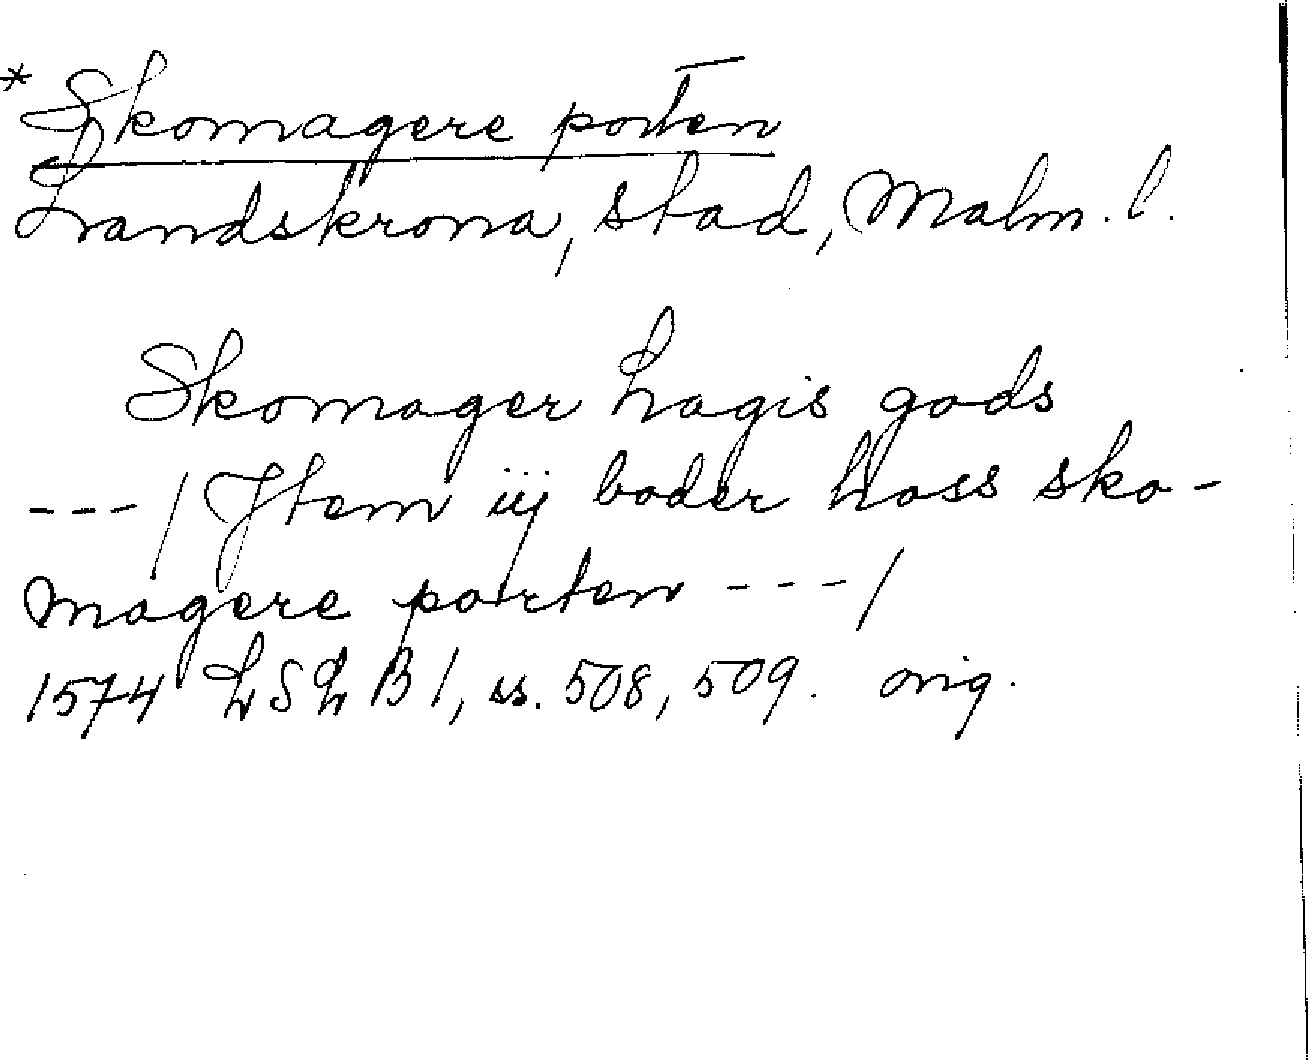 * Skomagere porten
Landskrona, stad, Malm. l.
Skomager Lagis gods
---/ Jtem iij boder hoss sko-
magere porten ---/
1574 LSL B 1, ss. 508, 509. orig.